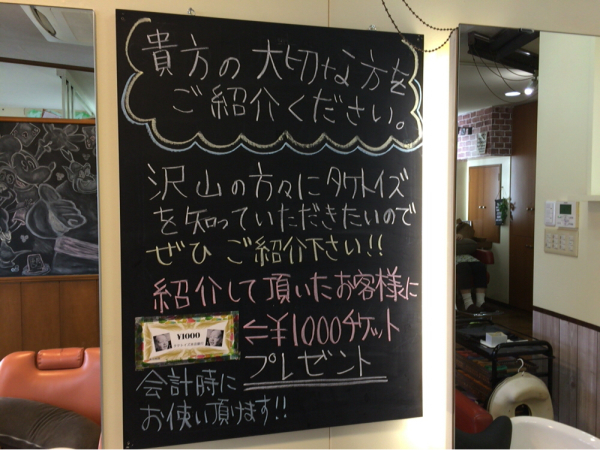 貴方の大切な方を
ご紹介ください。
沢山の方々にタケトイズ
を知っていただきたいので
ぜひ ご紹介下さい!!
紹介して頂いたお客様に
¥1000
⇐¥1000チケット
プレゼント
会計時に
お使い頂けます!!